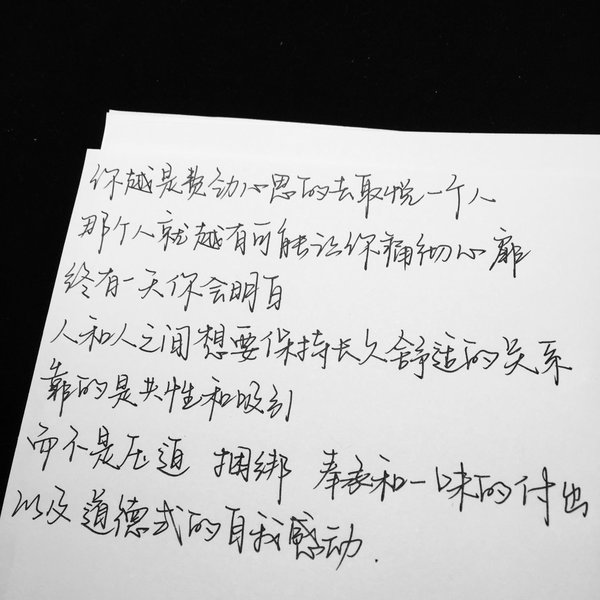 你越是费动心思的去取悦一个人
那个人就越有可能让你痛彻心扉
终有一天你会明白
人和人之间想要保持长久舒适的关系
靠的是共性和吸引
而不是压迫 捆绑 奉承和一味的付出
以及道德式的自我感动.